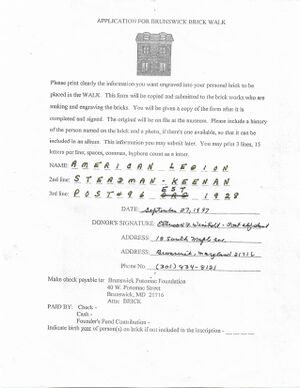 APPLICATION FOR BRUNSWICK BRICK WALK
Please print clearly the information you want engraved into your personal brick to be
placed in the WALK. This form will be copied and submitted to the brick works who are
making and engraving the bricks. You will be given a copy of the form after it is
completed and signed. The original will be on file at the museum. Please include a history
of the person named on the brick and a photo, if there's one available, so that it can be
included in an album. This information you may submit later. You may print 3 lines, 15
letters per line, spaces, commas, hyphens count as a letter.
NAME: AMERICAN LEGION
2nd line: STEADMAN - KEENAN
EST
3rd line: POST #96 1928
DATE: September 27, 1997
DONOR'S SIGNATURE:
ADDRESS: 18 South Maple Ave.
ADDRESS: Brunswick, Maryland 21716
Phone No. (301) 834-8121
Make check payable to: Brunswick Potomac Foundation
40 W. Potomac Street
Brunswick, MD 21716
Attn: BRICK
PAID BY: Check -
Cash -
Founder's Fund Contribution -
Indicate birth year of person(s) on brick if not included in the inscription - _ _ _ _